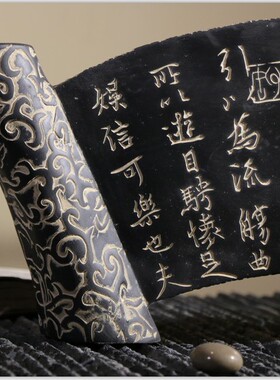 引以為流觴曲
所以遊目騁懷足
娛信可樂也夫